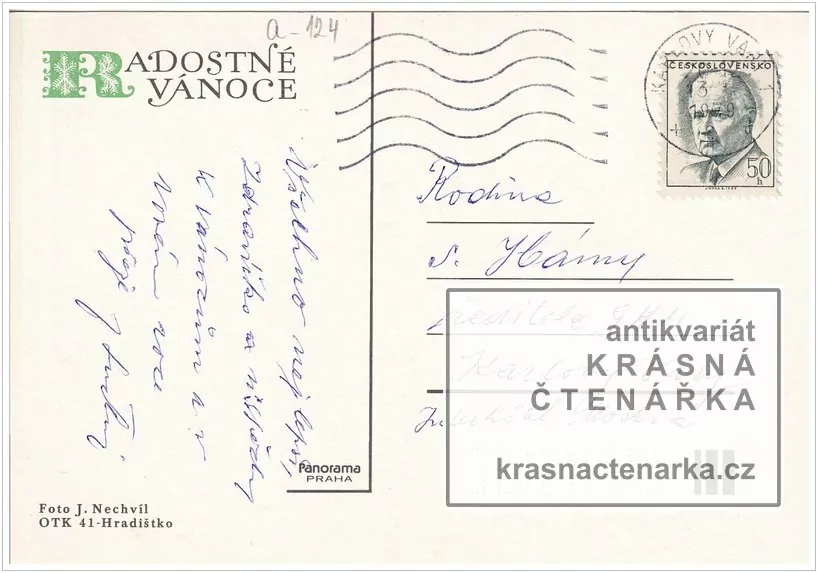 a-124
RADOSTNÉ
VÁNOCE
KARLOVY VARY 1
ČESKOSLOVENSKO
50
h
Všechno nejlepší,
Zdravíčko a úspěchy
K vánocům a v
Novém roce
přeje
Rodina
s. Hámy
ředitele
Karlovy Vary
antikvariát
KRÁSNÁ
ČTENÁŘKA
krasnactenarka.cz
Panorama
PRAHA
Foto J. Nechvíl
OTK 41-Hradištko